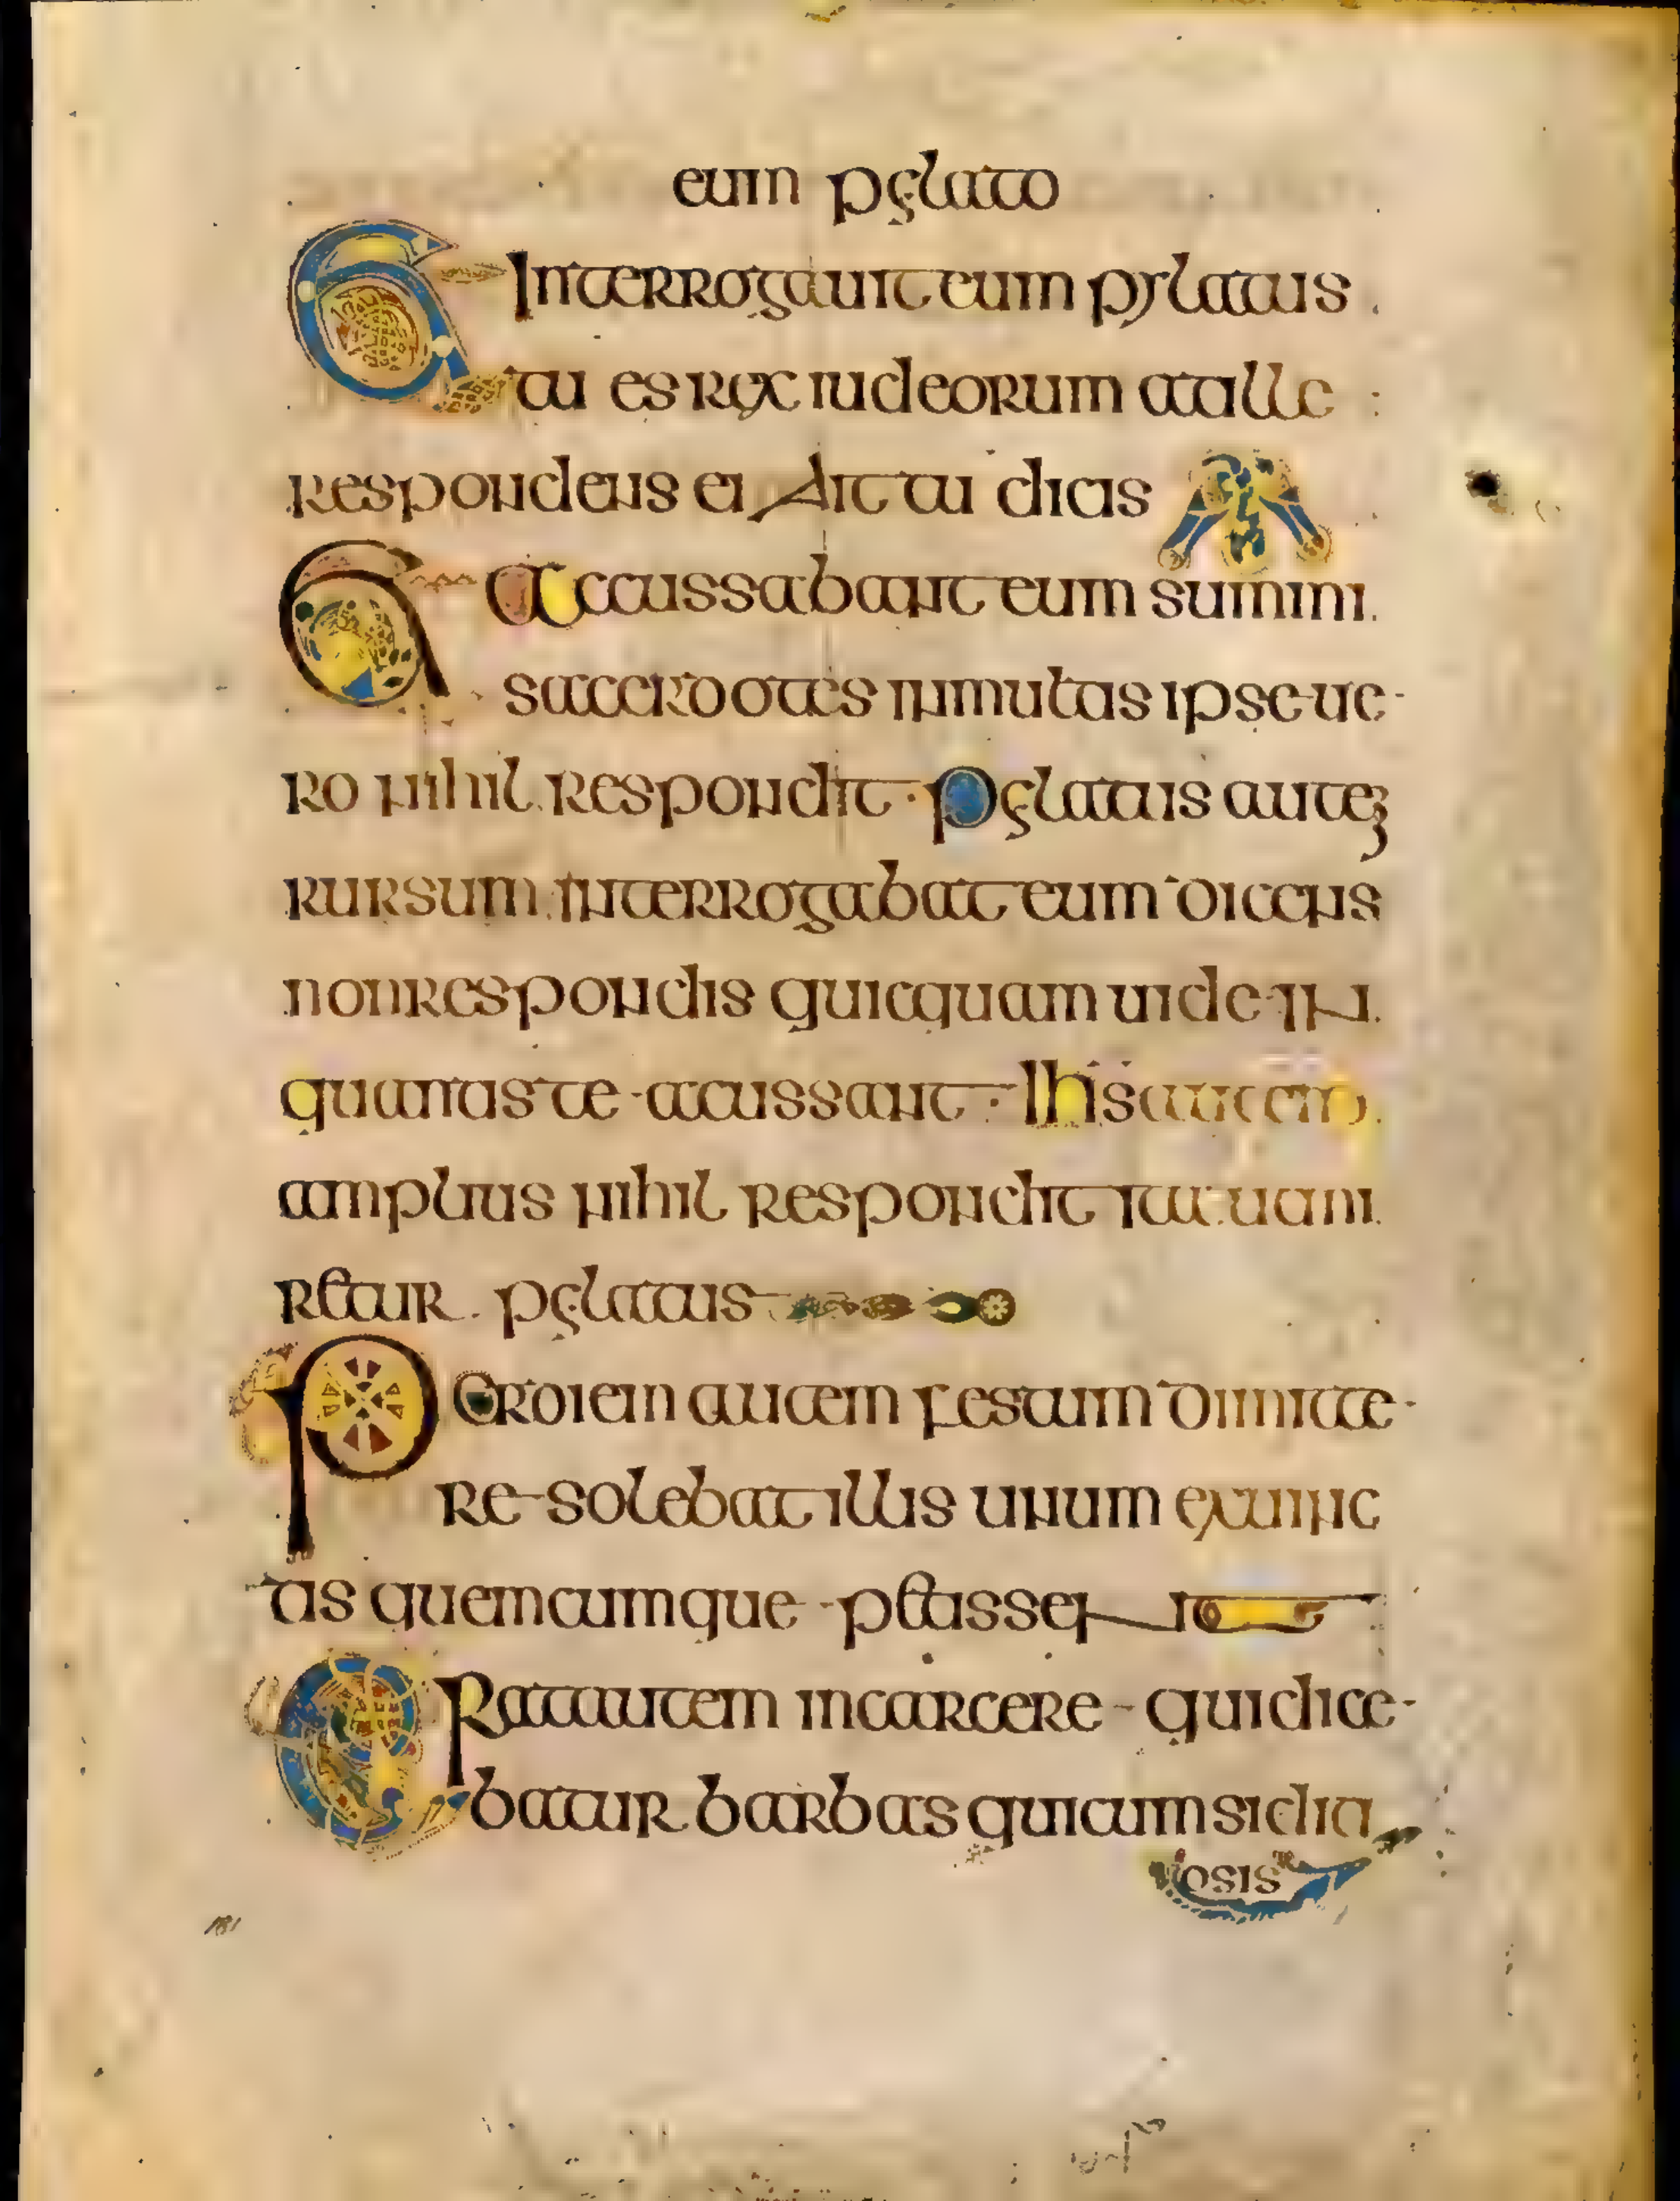 eum pylato
Et Interrogauit eum pylatus
tu es rex iudeorum at ille
respondens ei Ait tu dicis
Et Accussabant eum summi
sacerdotes in multis ipse ue
ro nihil respondit Pylatus autem
rursum interrogabat eum dicens
non respondis quicquam uide in
quantis te acussant Ihs autem
amplius nihil respondit ita ut mi
retur pylatus
Per diem autem festum dimitte
re solebat illis unum ex uinc
tis quemcumque petissent
Erat autem in carcere qui dice
batur barbas qui cum sidit
iosis
181